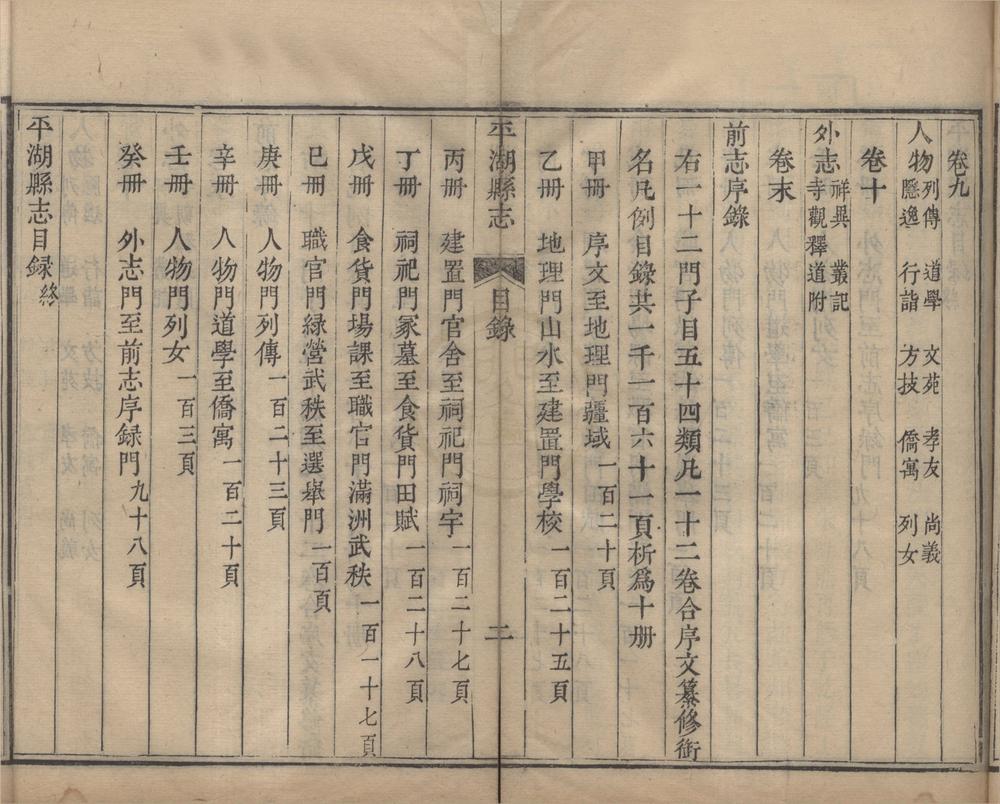 卷九
人物 列傳 道學 文苑 孝友 尚義
隱逸 行誼 方技 僑寓 列女
卷十
外志 祥異 叢記
寺觀釋道附
卷末
前志序錄
右一十二門子目五十四類凡一十二卷合序文纂修銜
名凡例目錄共一千一百六十一頁析爲十册
甲册 序文至地理門疆域一百二十頁
乙册 地理門山水至建置門學校一百二十五頁
平湖縣志 目錄 二
丙册 建置門官舍至祠祀門祠宇一百二十七頁
丁册 祠祀門冢墓至食貨門田賦一百二十八頁
戊册 食貨門場課至職官門滿洲武秩一百一十七頁
巳册 職官門緑營武秩至選舉門一百頁
庚册 人物門列傳一百二十三頁
辛册 人物門道學至僑寓一百二十頁
壬册 人物門列女一百三頁
癸册 外志門至前志序録門九十八頁
平湖縣志目録終